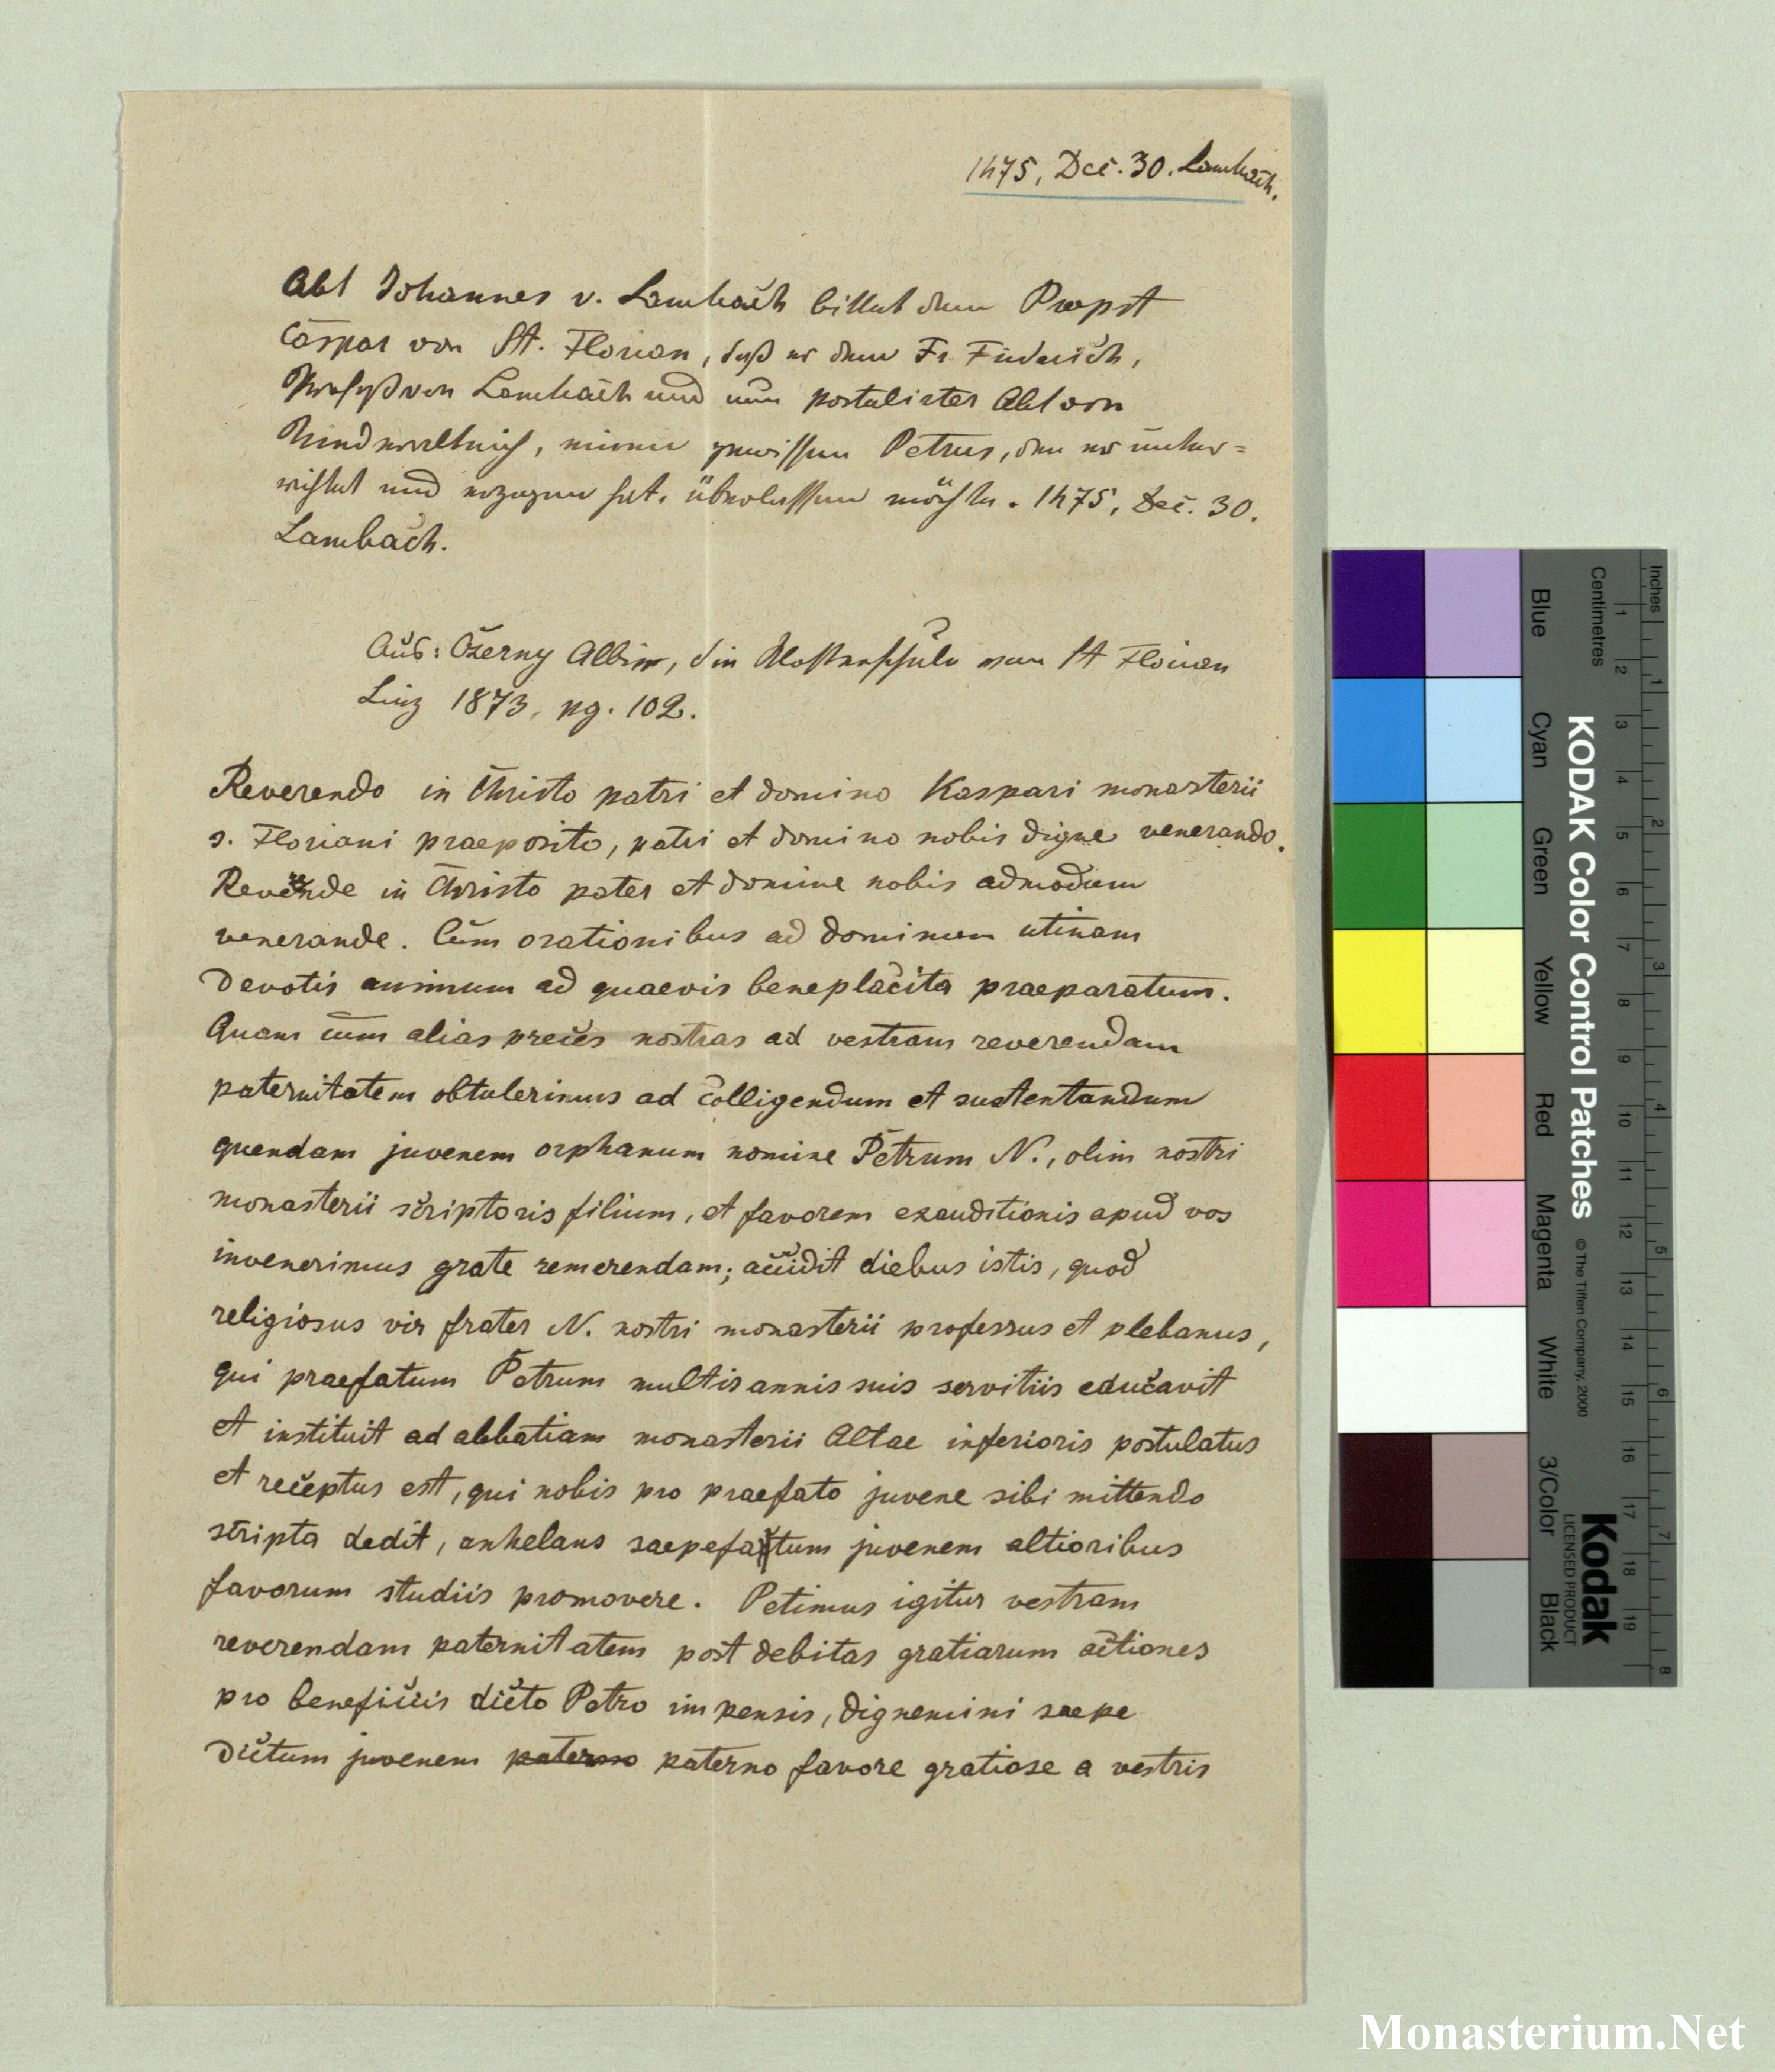 1475, Dec. 30. Lambach.
Abt Johannes v. Lambach bittet den Propst
Caspar von St. Florian, daß er dem Fr. Friderich,
Profeß von Lambach und nun postulirter Abt von
Niederaltaich, einen gewissen Petrus, den er unter=
richtet und erzogen hat, überlassen möchte. 1475, Dec. 30.
Lambach.
Aus: Czerny Albin, die Klosterschule von St Florian
Linz 1873, pg. 102.
Reverendo in Christo patri et domino Kaspari monasterii
s. Floriani praeposito, patri et domino nobis digne venerando.
Reverende in Christo pater et domine nobis admodum
venerande. Cum orationibus ad dominum utinam
devotis animum ad quaevis beneplacita praeparatum.
Quam cum alias preces nostras ad vestram reverendam
paternitatem obtulerimus ad colligendum et sustentandum
quendam juvenem orphanum nomine Petrum N., olim nostri
monasterii scriptoris filium, et favorem exauditionis apud vos
invenerimus grate remerendam; accidit diebus istis, quod
religiosus vir frater N. nostri monasterii professus et plebanus,
qui praefatum Petrum multis annis suis servitiis educavit
et instituit ad abbatiam monasterii Altae inferioris postulatus
et receptus est, qui nobis pro praefato juvene sibi mittendo
scripta dedit, anhelans saepefatum juvenem altioribus
favorum studiis promovere. Petimus igitur vestram
reverendam paternitatem post debitas gratiarum actiones
pro beneficiis dicto Petro impensis, dignemini saepe
dictum juvenem paterno paterno favore gratiose a vestris
Inches
Centimetres
1 2 3 4 5 6 7 8 9 10 11 12 13 14 15 16 17 18 19
1 2 3 4 5 6 7 8
KODAK Color Control Patches © The Tiffen Company, 2000
Kodak
LICENSED PRODUCT
Blue Cyan Green Yellow Red Magenta White 3/Color Black
Monasterium.Net